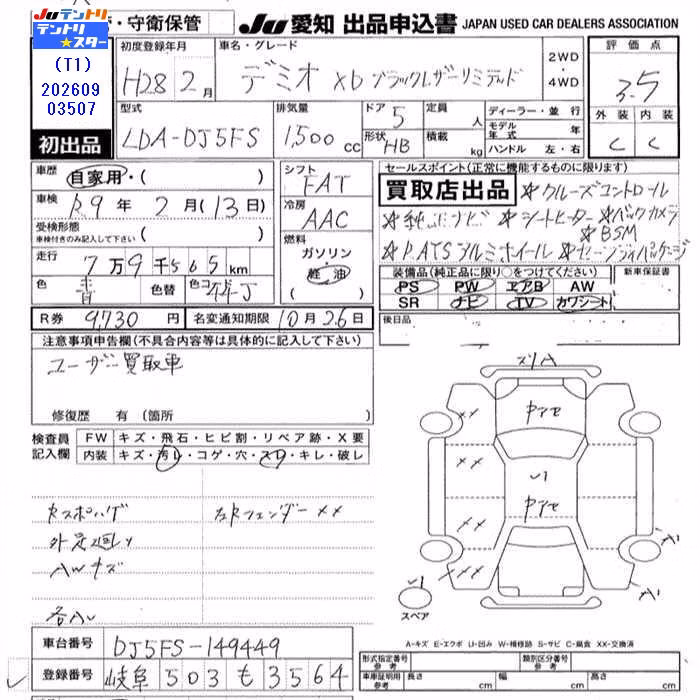 ・守衛保管
JUテントリ
テントリ★スター
(T1)
202609
03507
初出品
JU 愛知 出品申込書 JAPAN USED CAR DEALERS ASSOCIATION
初度登録年月
H28 2月
車名・グレード
デミオ XD ブラックレザーリミテッド
2WD・4WD
評価点
3.5
外装 内装
C C
型式
LDA-DJ5FS
排気量
1,500 cc
ドア 5
形状 HB
定員 人
積載 kg
ディーラー・並行
モデル年式 年
ハンドル 左・右
車歴 自家用・( )
車検 R9年 2月(13日)
受検形態
車検付きのみ記入して下さい ( )
走行 7万9千565km
色 青 色替 色コ
シフト
FAT
冷房
AAC
燃料
ガソリン・軽油
セールスポイント(正常に機能するものに限ります)
買取店出品 *クルーズコントロール
*純正ナビ *シートヒーター *バックカメラ
*BSM
アルミホイール
装備品(純正品に限り○をつけてください)
PS PW エアB AW
SR ナビ TV カワシート
新車保証書
後日品
R券 9,730円 名変通知期限 10月26日
注意事項申告欄(不具合内容等は具体的に記入して下さい)
ユーザー買取車
修復歴 有(箇所
検査員記入欄
FW キズ・飛石・ヒビ割・リペア跡・X要
内装 キズ・汚レ・コゲ・穴・スレ・キレ・破レ
AWキズ
フェンダー XX
スリA
XX
XX
XX
XXX
A1
A1
スペア
A-キズ E-エクボ U-凹み W-補修跡 S-サビ C-腐食 XX-交換済
車台番号 DJ5FS-149449
登録番号 岐阜 503 も 3564
形式指定番号 参考
類別区分番号 参考
車庫証明用 参考 長さ cm 幅 cm 高さ cm